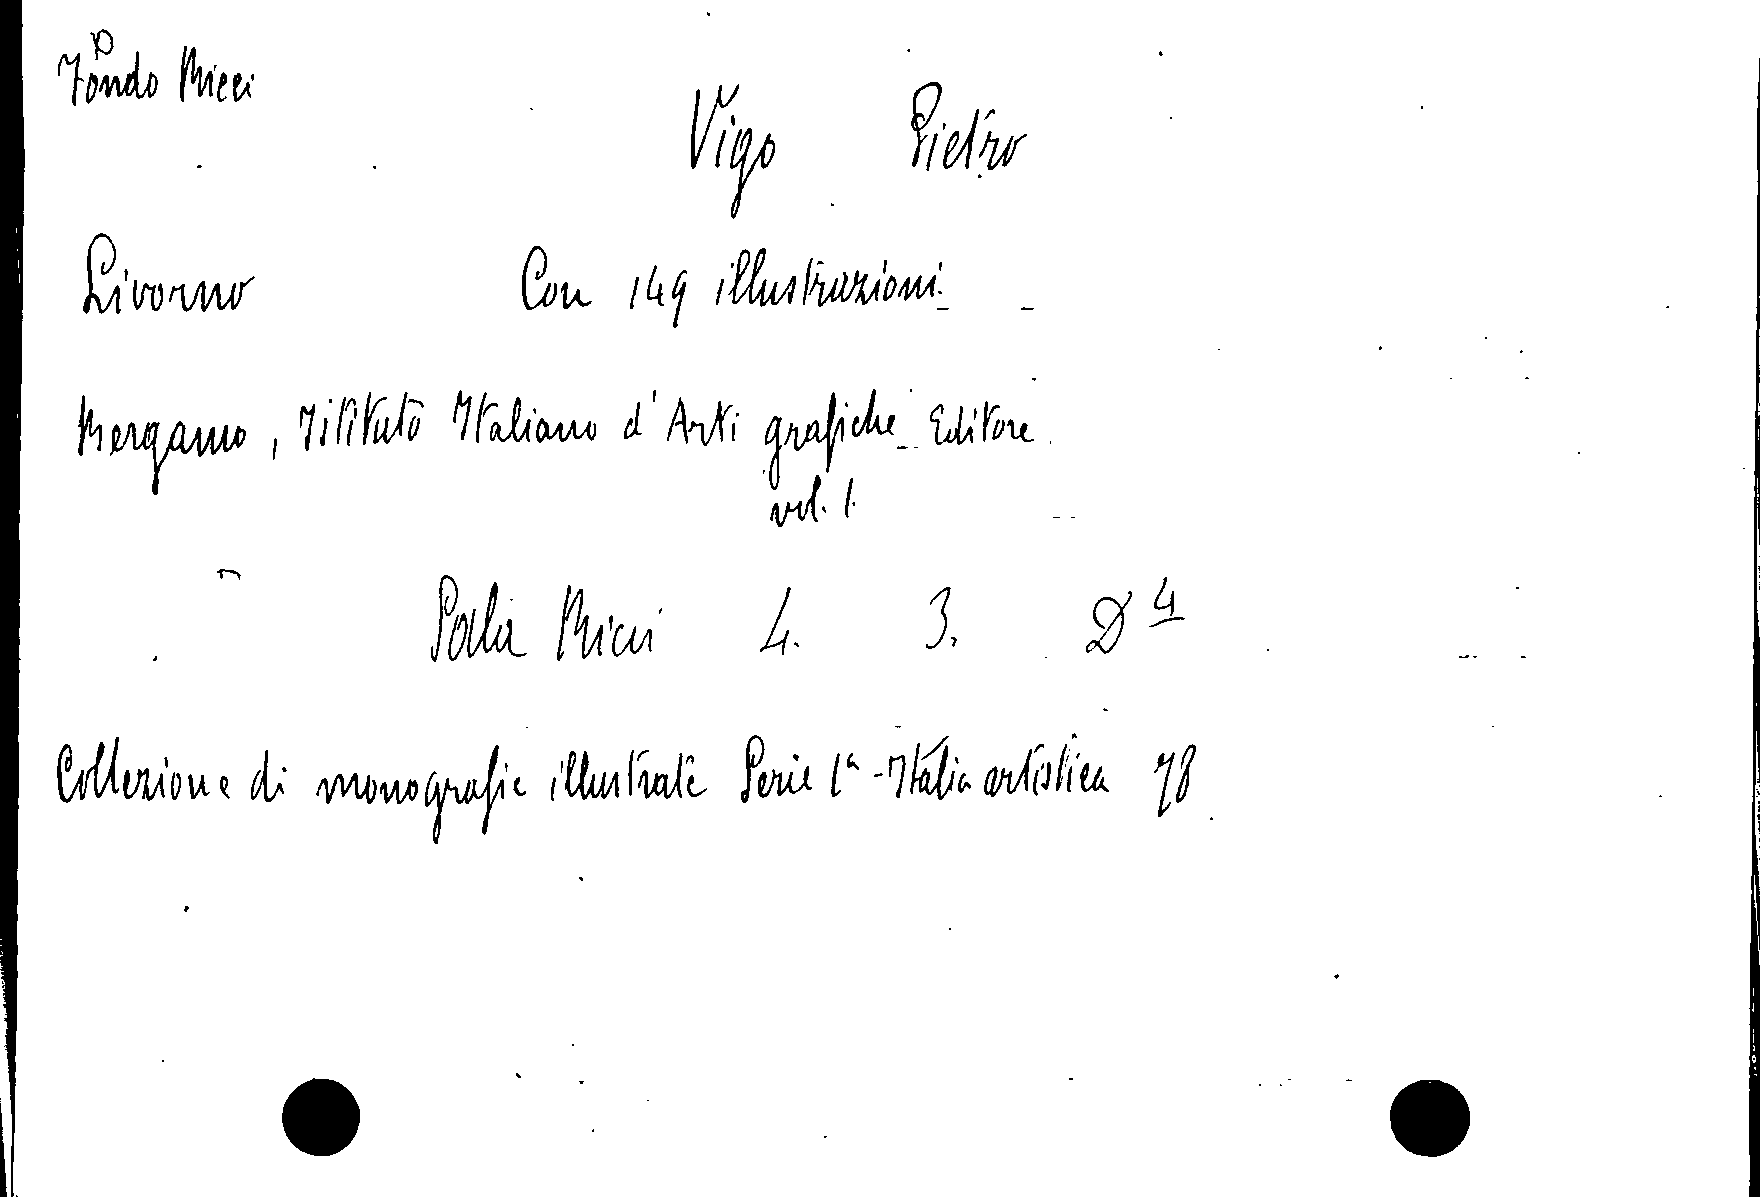 Fondo Ricci
Vigo Pietro
Livorno Con 149 illustrazioni.
Bergamo, Istituto Italiano d'Arti grafiche Editore
vol. 1.
Sala Ricci 4. 3. D 4
Collezione di monografie illustrate Serie 1ª - Italia artistica 78